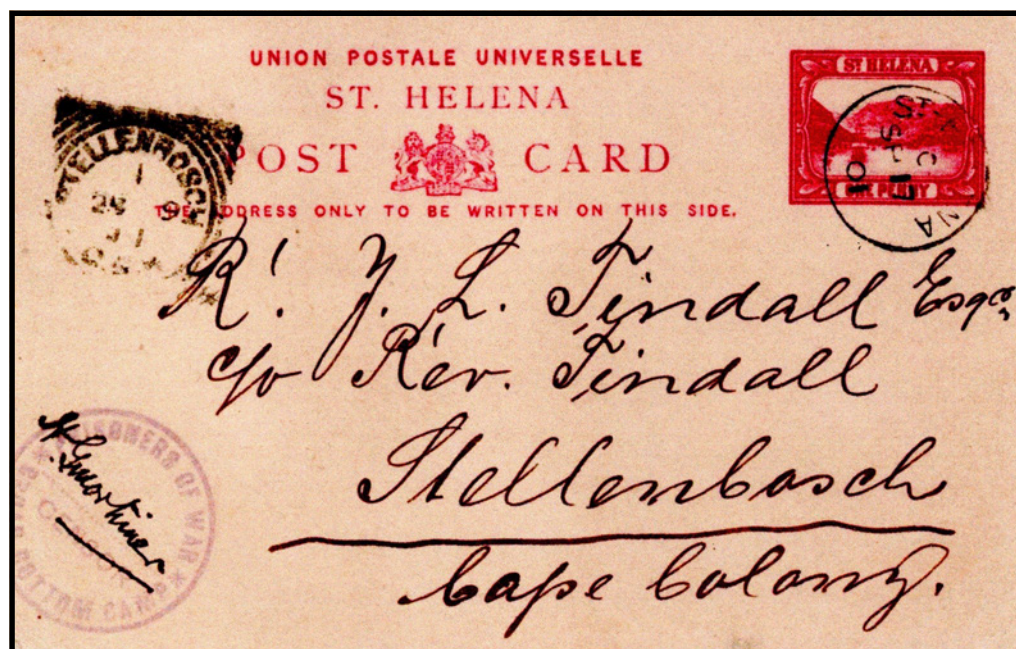 UNION POSTALE UNIVERSELLE
ST. HELENA
POST CARD
THE ADDRESS ONLY TO BE WRITTEN ON THIS SIDE.
ST HELENA
ONE PENNY
STELLENBOSCH
SP 17
01
R. J. L. Tindall Esqre
c/o Rev. Tindall
Stellenbosch
Cape Colony.
PRISONERS OF WAR
CENSOR
BOTTOM CAMP